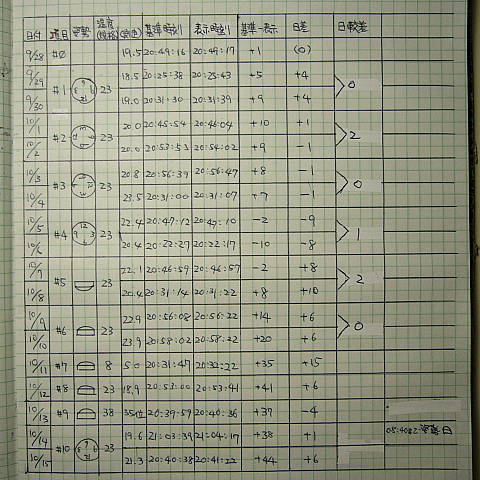 日付 項目 姿勢 温度(規格) (実色) 基準時刻 表示時刻 基準-表示 日差 日較差
9/28 #0 19.5 20:49:16 20:49:17 +1 (0)
9/29 18.5 20:25:38 20:25:43 +5 +4
#1 23 0
9/30 19.0 20:31:30 20:31:39 +9 +4
10/1 20.0 20:45:54 20:46:04 +10 +1
#2 23 2
10/2 20.0 20:53:53 20:54:02 +9 -1
10/3 20.8 20:56:39 20:56:47 +8 -1
#3 23 0
10/4 23.5 20:31:00 20:31:07 +7 -1
10/5 22.4 20:47:12 20:47:10 -2 -9
#4 12 9 3 6 23 1
10/6 20.4 20:22:27 20:22:17 -10 -8
10/7 22.1 20:46:59 20:46:57 -2 +8
#5 23 2
10/8 20.4 20:31:14 20:31:22 +8 +10
10/9 22.9 20:56:08 20:56:22 +14 +6
#6 23 0
10/10 23.9 20:58:02 20:58:22 +20 +6
10/11 #7 8 5.0 20:31:47 20:32:22 +35 +15
10/12 #8 23 18.9 20:53:00 20:53:41 +41 +6
10/13 #9 38 35位 20:39:59 20:40:36 +37 -4
10/14 19.6 21:03:39 21:04:17 +38 +1
#10 23
10/15 21.3 20:40:38 20:41:22 +44 +6